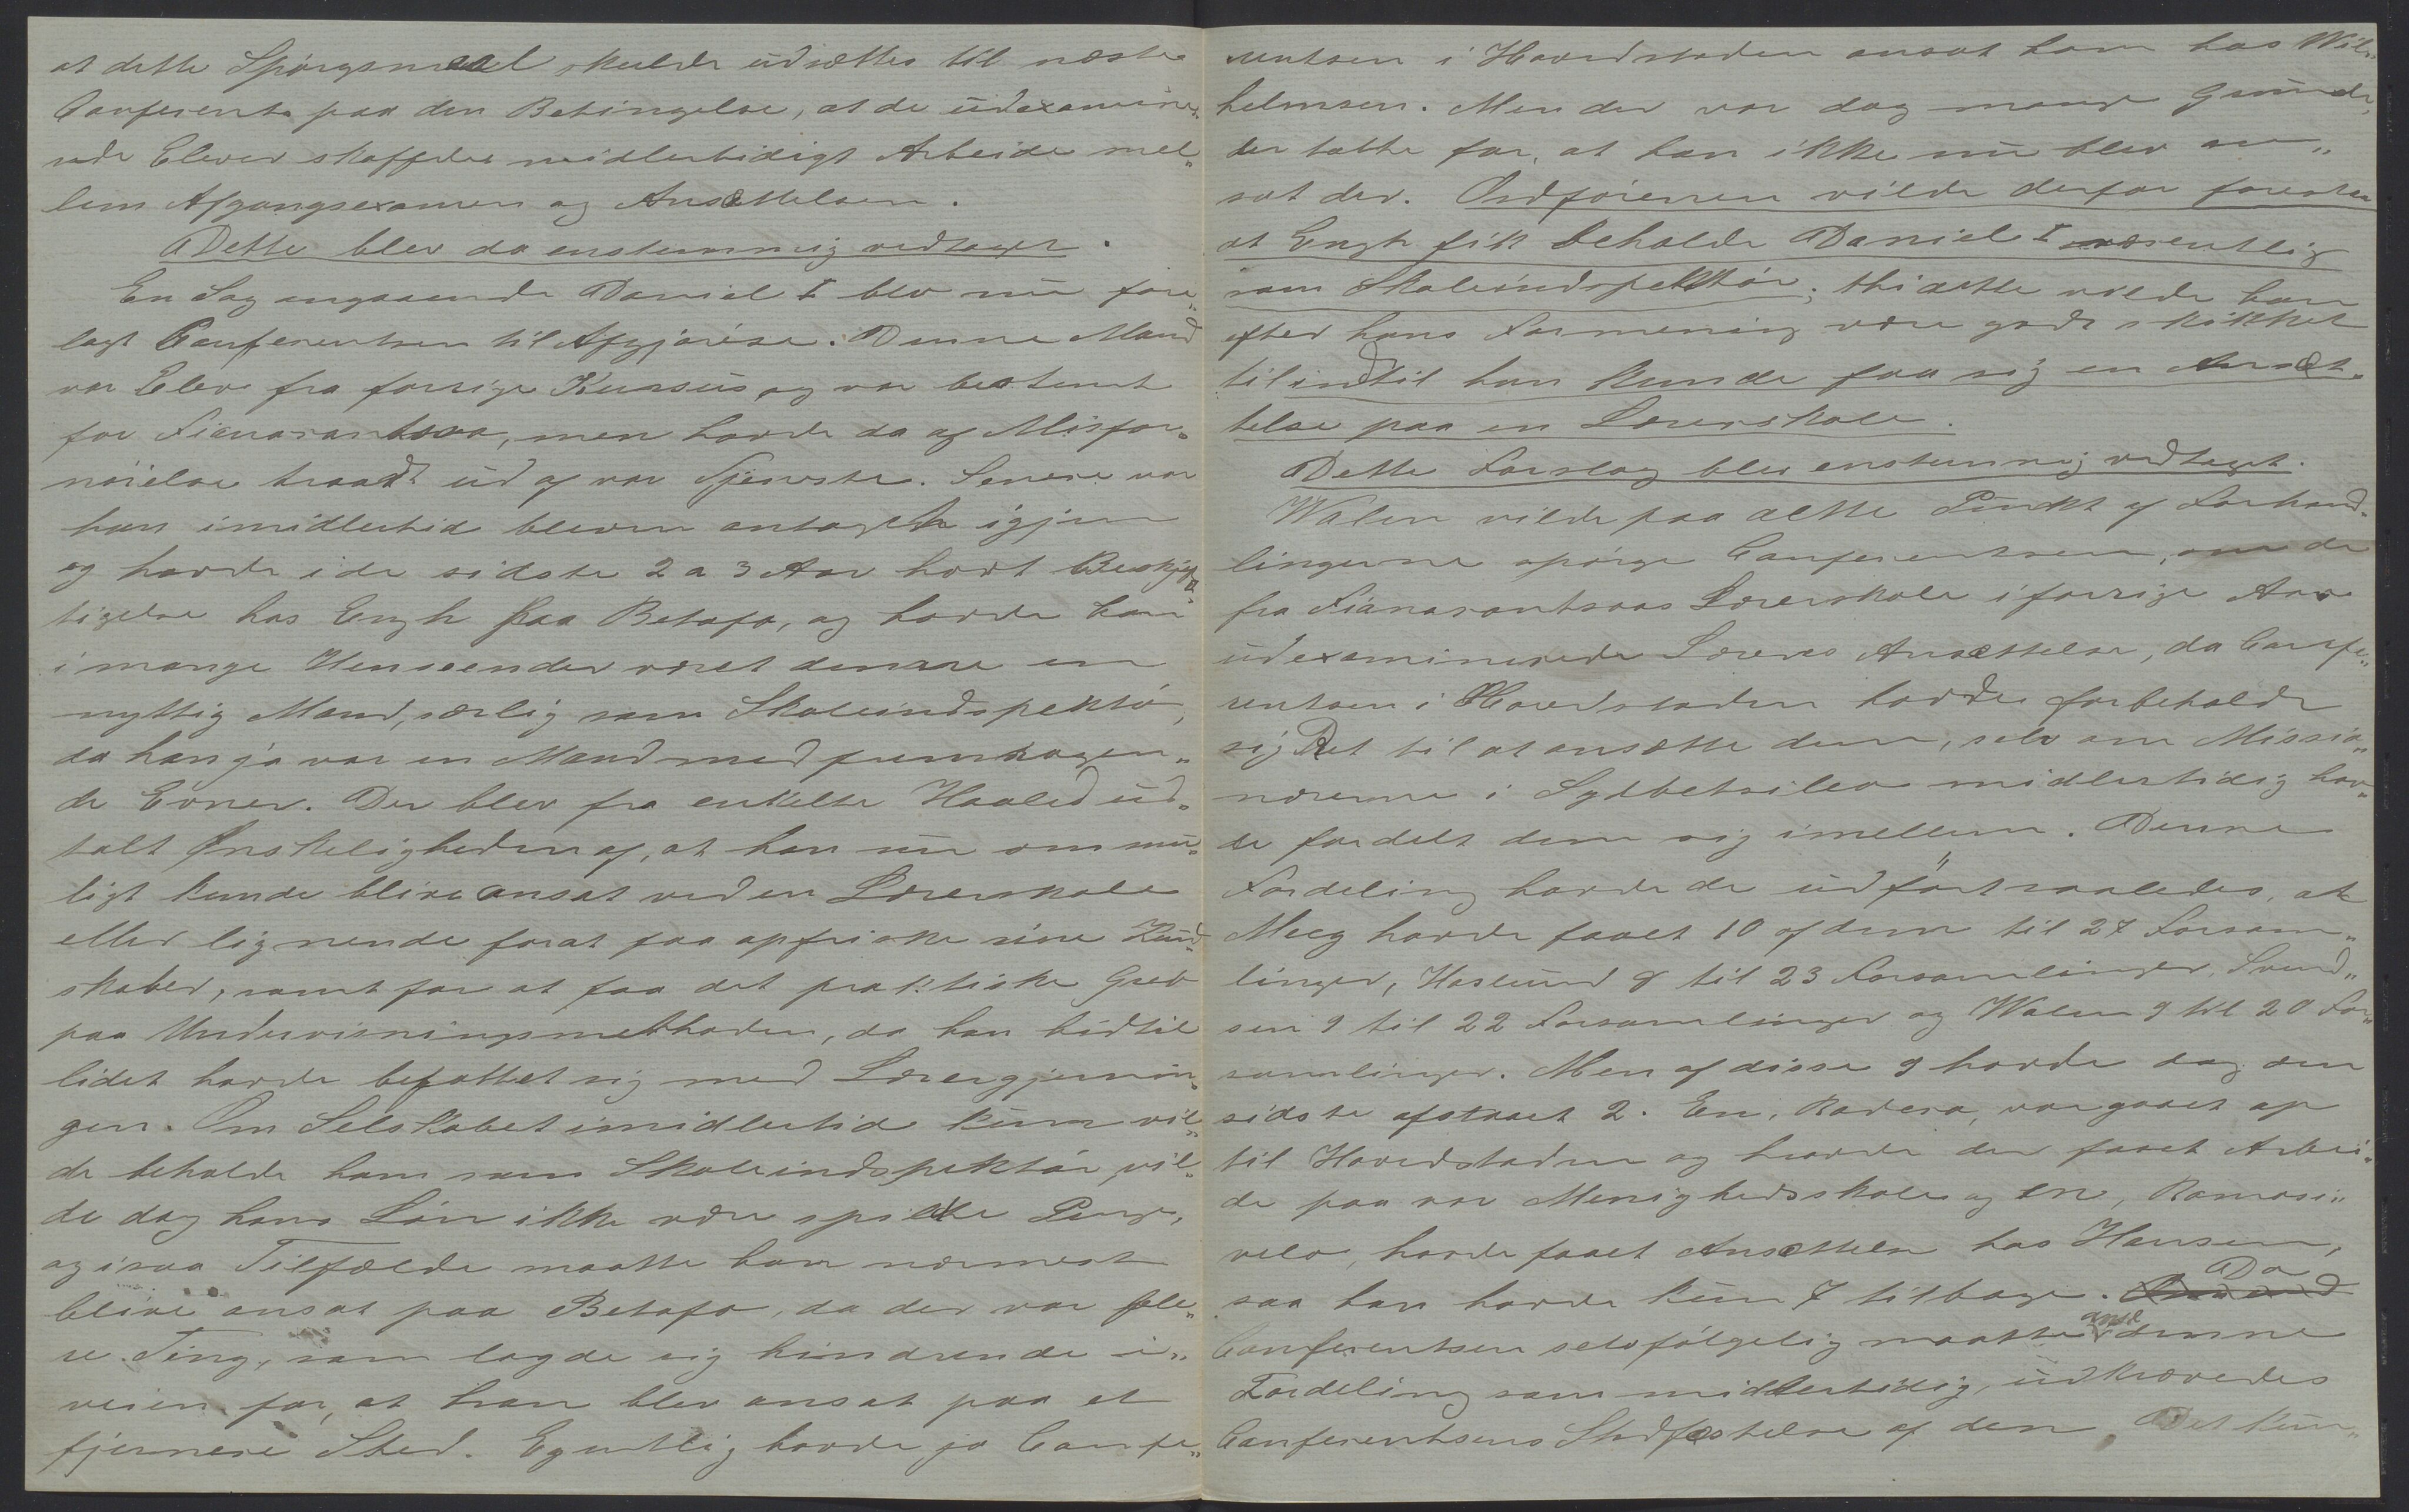 at dette Spørgsmaal skulde udsættes til næste
Conferents paa den Betingelse, at de udexamine„
rede Elever skaffedes midlertidigt Arbeide mel„
lem Afgangsexamen og Ansættelsen.
Dette blev da enstemmig vedtaget.
En Sag angaaende Daniel I blev nu fore„
lagt Conferentsen til Afgjørelse. Denne Mand
var Elev fra forrige Kursus og var bestemt
for Fianarantsoa, men havde da af Misfor„
nøielse traadt ud af vor Tjeneste. Senere var
han imidlertid bleven antagen igjen
og havde i de sidste 2 a 3 Aar havt Beskjæf„
tigelse hos Engh paa Betafo, og havde han
i mange Henseender været denne en
nyttig Mand, særlig som Skoleindspektør,
da han jo var en Mand med fremragen„
de Evner. Der blev fra enkelte Hold ud„
talt Ønskeligheden af, at han nu om mu„
ligt kunde blive ansat ved en Lærerskole
eller lignende forat faa opfriske sine Kund„
skaber, samt for at faa det praktiske Greb
paa Undervisningsmethoden, da han hidtil
lidet havde befattet sig med Lærergjernin„
gen. Om Selskabet imidlertid kun vil„
de beholde ham som Skoleindspektør, vil„
de dog hans Løn ikke være spildte Penge,
og isaa Tilfælde maatte han nærmest
blive ansat paa Betafo, da der var fle„
re Ting, som lagde sig hindrende i„
veien for, at han blev ansat paa et
fjernere Sted. Egentlig havde jo Confe„
rentsen i Hovedstaden ansat ham hos Wil„
helmsen. Men der var dog mange Grunde,
der talte for, at han ikke nu blev an„
sat der. Ordføreren vilde derfor foreslaa
at Engh fik beholde Daniel I væsentlig
som Skoleindspektør; thi dette vilde han
efter hans Formening være godt skikket
til indtil han kunde faa sig en Ansæt„
telse paa en Lærerskole.
Dette Forslag blev enstemmig vedtaget.
Walen vilde paa dette Punkt af Forhand„
lingerne spørge Conferentsen, om de
fra Fianarantsoas Lærerskole i forrige Aar
udexaminerede Læreres Ansættelse, da Confe„
rentsen i Hovedstaden havde forbeholdt
sig Ret til at ansætte dem, selv om Missio„
nærerne i Sydbetsileo midlertidig hav„
de fordelt dem sig imellem. Denne
Fordeling havde de udført saaledes, at
Meeg havde faaet 10 af dem til 27 Forsam„
linger, Haslund 8 til 23 Forsamlinger, Svend„
sen 9 til 22 Forsamlinger og Walen 9 til 20 For„
samlinger. Men af disse 9 havde dog den
sidste afstaaet 2. En, Radesa, var gaaet op
til Hovedstaden og havde der faaet Arbei„
de paa vor Menighedsskole og en, Ramasi„
velo, havde faaet Ansættelse hos Hansen,
saa han havde kun 7 tilbage. Da
Conferentsen selvfølgelig maatte anse denne
Fordeling som midlertidig, udkrævedes
Conferentsens Stadfæstelse af den. Det kun„